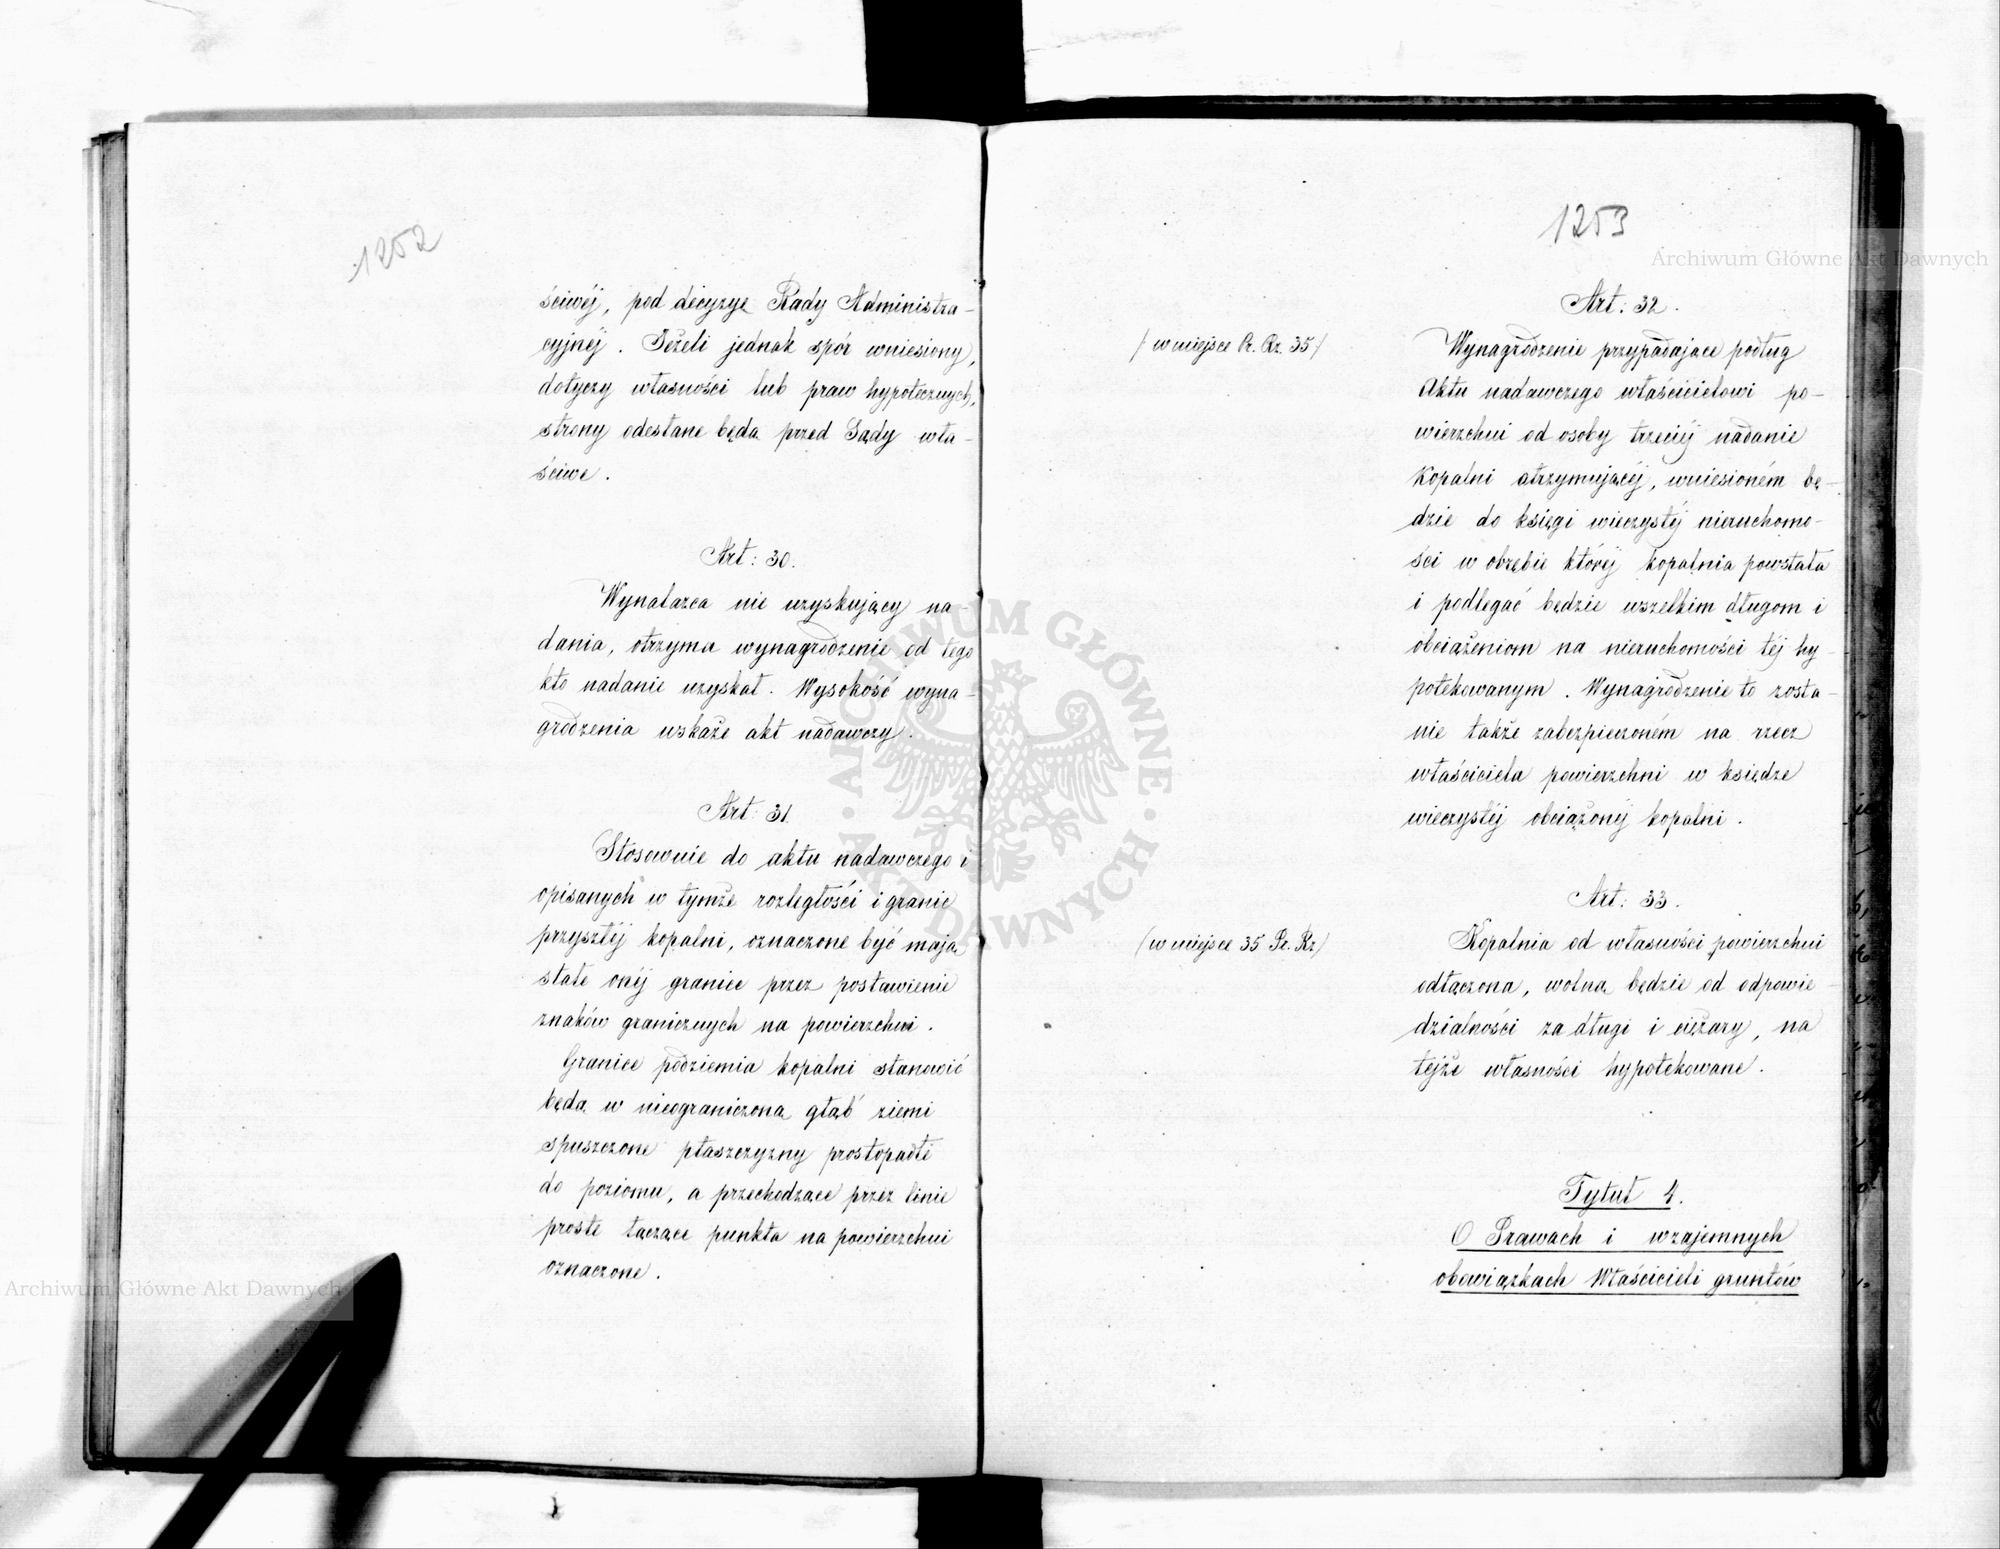 1252
ściwéj, pod decyzyę Rady Administra-
cyjnéj. Jeżeli jednak spór wniesiony,
dotyczy własności lub praw hypotecznych,
strony odesłane będą przed Sądy wła-
ściwe.
Art: 30.
Wynalazca nie uzyskujący na-
dania, otrzyma wynagrodzenie od tego
kto nadanie uzyskał. Wysokość wyna-
grodzenia wskaże akt nadawczy.
Art: 31.
Stosownie do aktu nadawczego i
opisanych w tymże rozległości i granic
przyszłéj kopalni, oznaczone być mają
stałe onéj granice przez postawienie
znaków granicznych na powierzchni.
Granice podziemia kopalni stanowić
będą w nieograniczoną głąb' ziemi
spuszczone płaszczyzny prostopadłe
do poziomu, a przechodzące przez linie
proste łączące punkta na powierzchni
oznaczone.
1253
Art: 32.
(w miejsce Pr. Rz. 35)
Wynagrodzenie przypadające podług
Aktu nadawczego właścicielowi po-
wierzchni od osoby trzeciéj nadanie
Kopalni otrzymującéj, wniesioném bę-
dzie do księgi wieczystéj nieruchomo-
ści w obrębie któréj kopalnia powstała
i podlegać będzie wszelkim długom i
obciążeniom na nieruchomości téj hy-
potekowanym. Wynagrodzenie to zosta-
nie także zabezpieczoném na rzecz
właściciela powierzchni w księdze
wieczystéj obciążonéj kopalni.
Art: 33.
(w miejsce 35 Pr. Rz)
Kopalnia od własności powierzchni
odłączona, wolną będzie od odpowie-
dzialności za długi i ciężary, na
tejże własności hypotekowane.
Tytuł 4.
O Prawach i wzajemnych
obowiązkach Właścicieli gruntów
Archiwum Główne Akt Dawnych
Archiwum Główne Akt Dawnych
ARCHIWUM GŁÓWNE AKT DAWNYCH